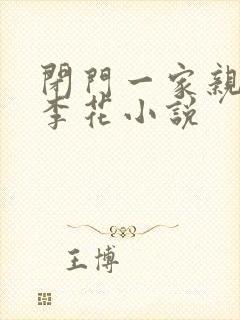 閉門一家親
李花小說
王博